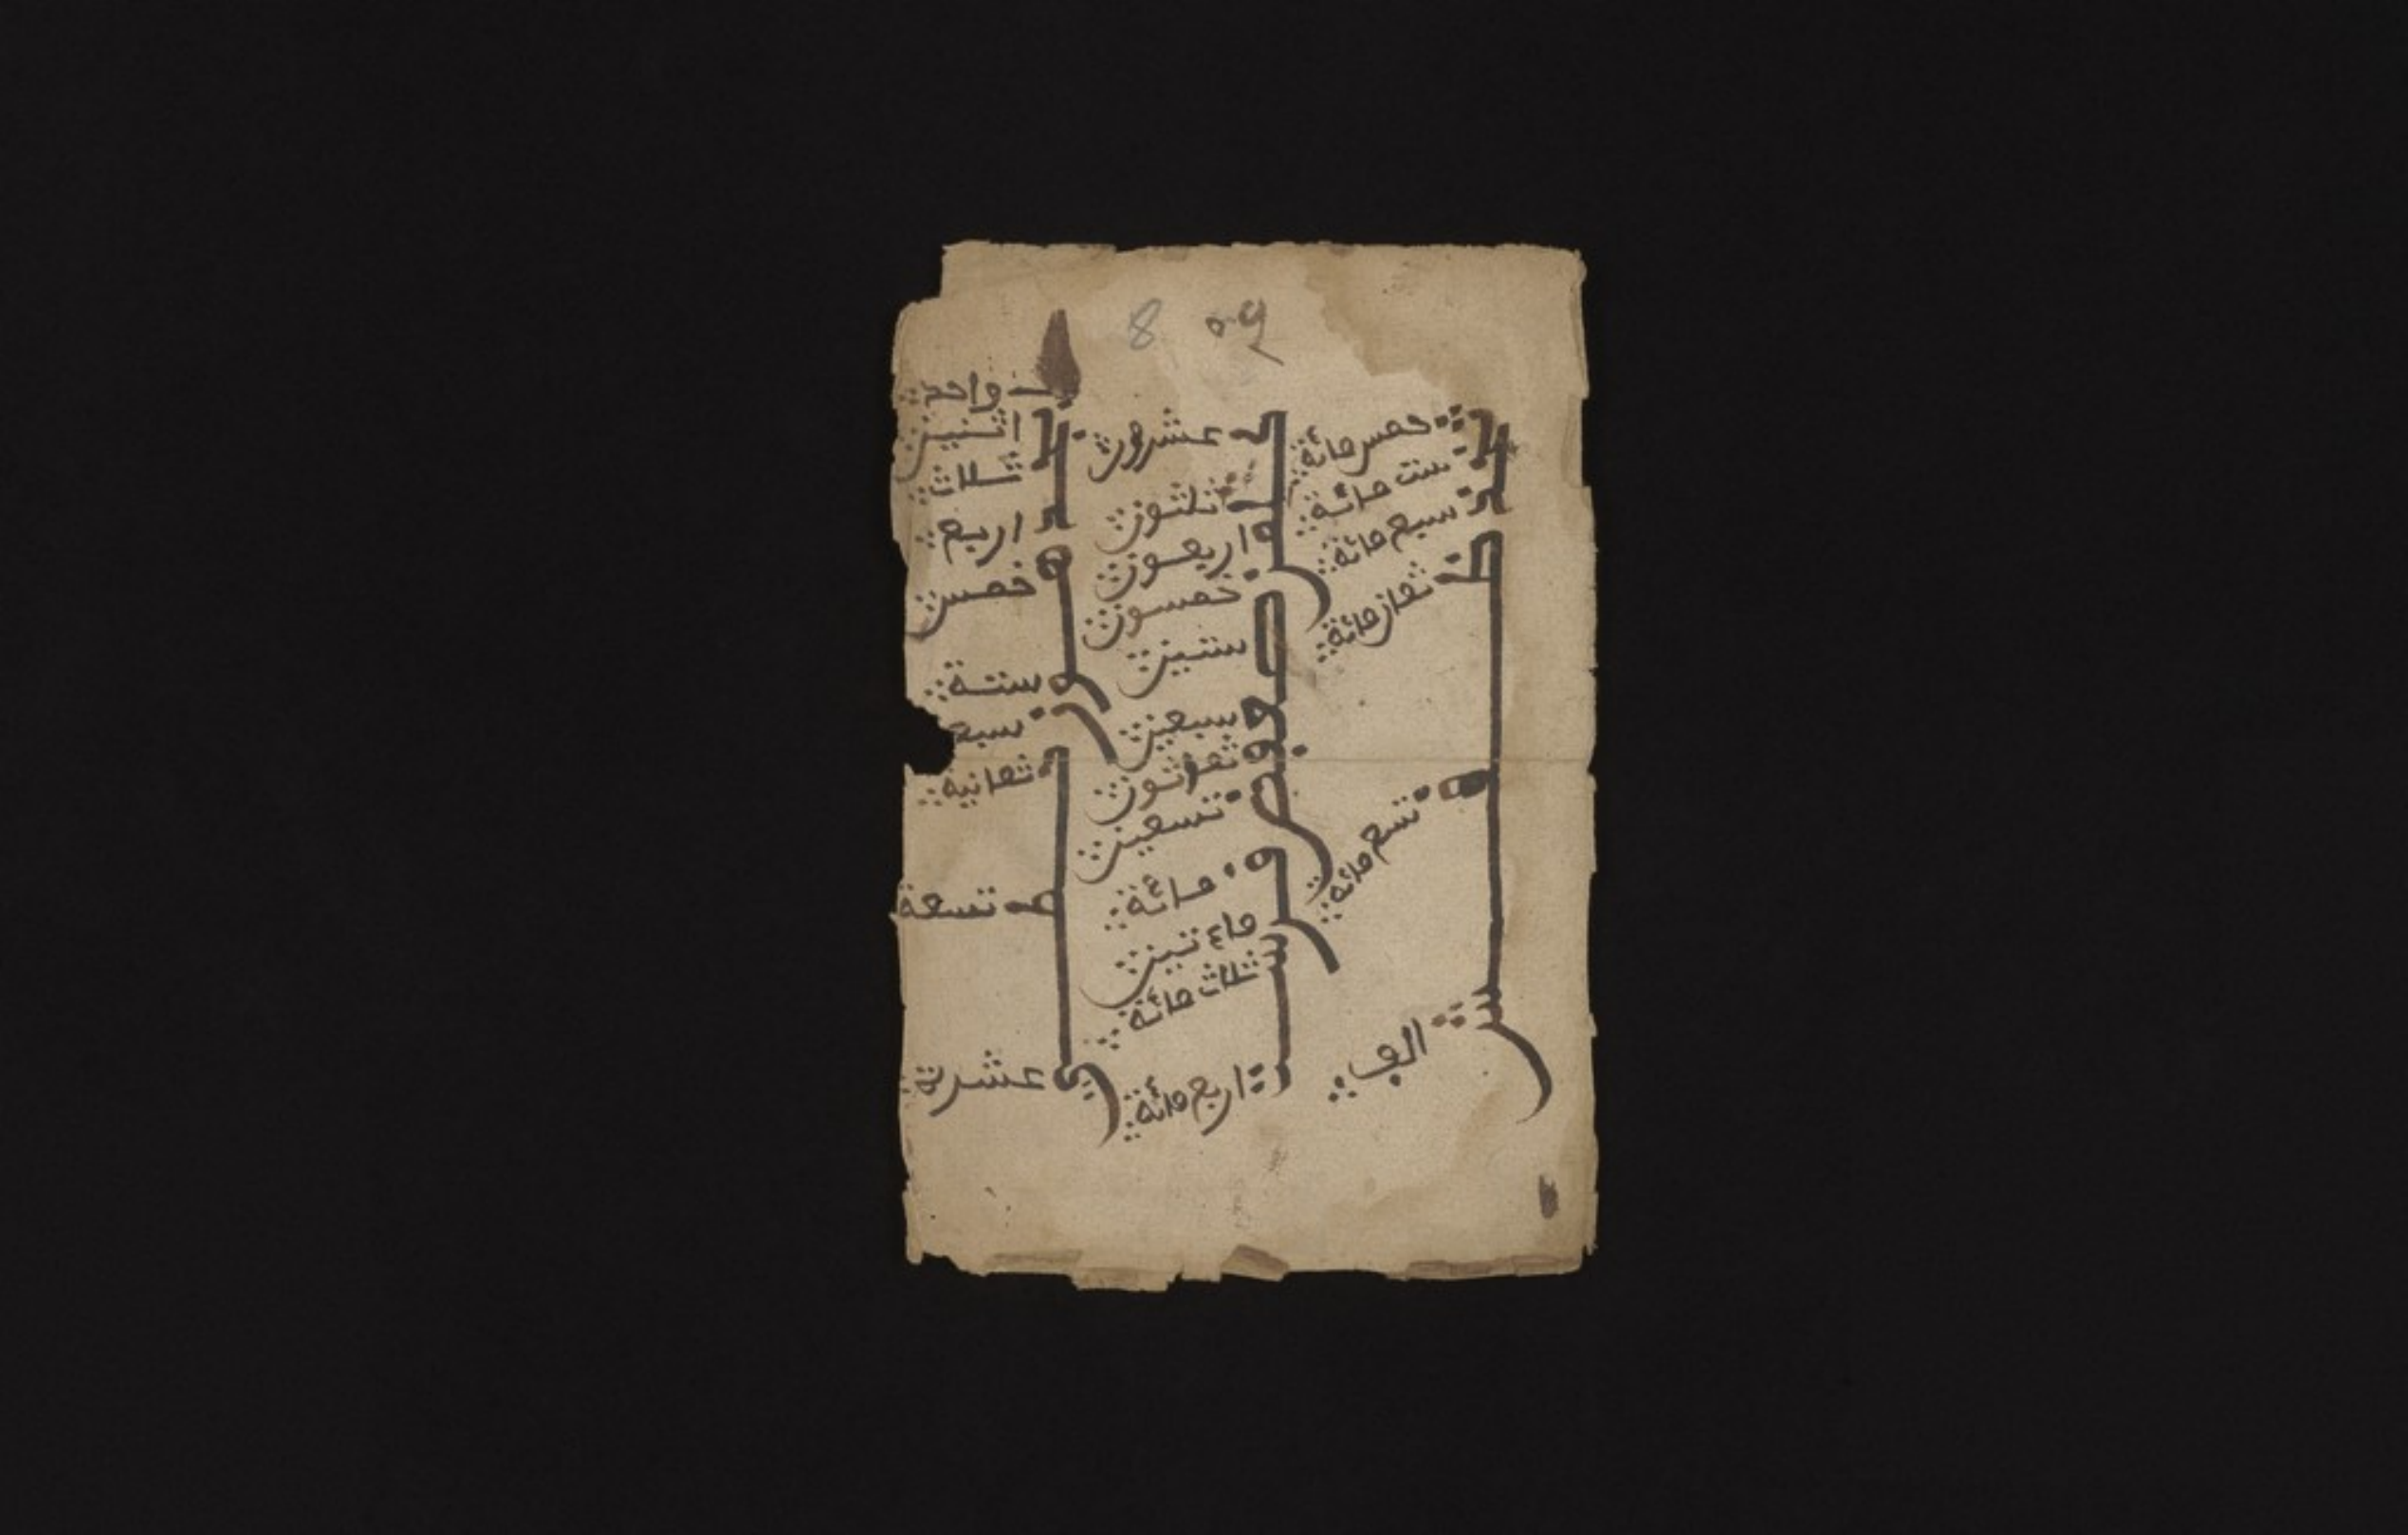 8
ابجد هوز حطي
واحد
اثنين
ثلاث
اربع
خمس
ستة
سبع
ثمانية
تسعة
عشرة
كلمن صعفض قرست
عشرون
ثلثون
اربعون
خمسون
ستين
سبعين
ثمانون
تسعين
مائة
ماءتين
ثلاث مائة
اربع مائة
ثخذ ظغش
خمس مائة
ست مائة
سبع مائة
ثمان مائة
تسع مائة
الف